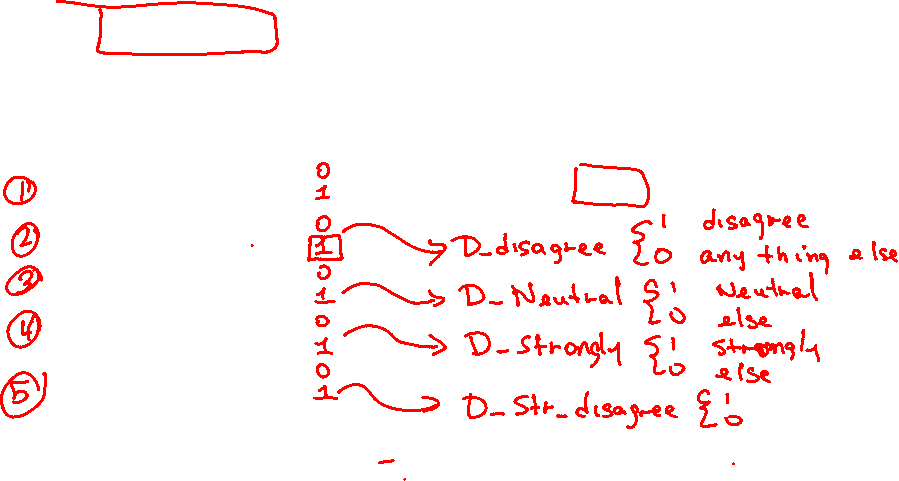 0
① 1
0 { 1 disagree
② 1 D_disagree { 0 any thing else
0
③ 1 D_Neutral { 1 Neutral
0 { 0 else
④ 1 D_Strongly { 1 strongly
0 { 0 else
⑤ 1 D_Str_disagree { 1
0